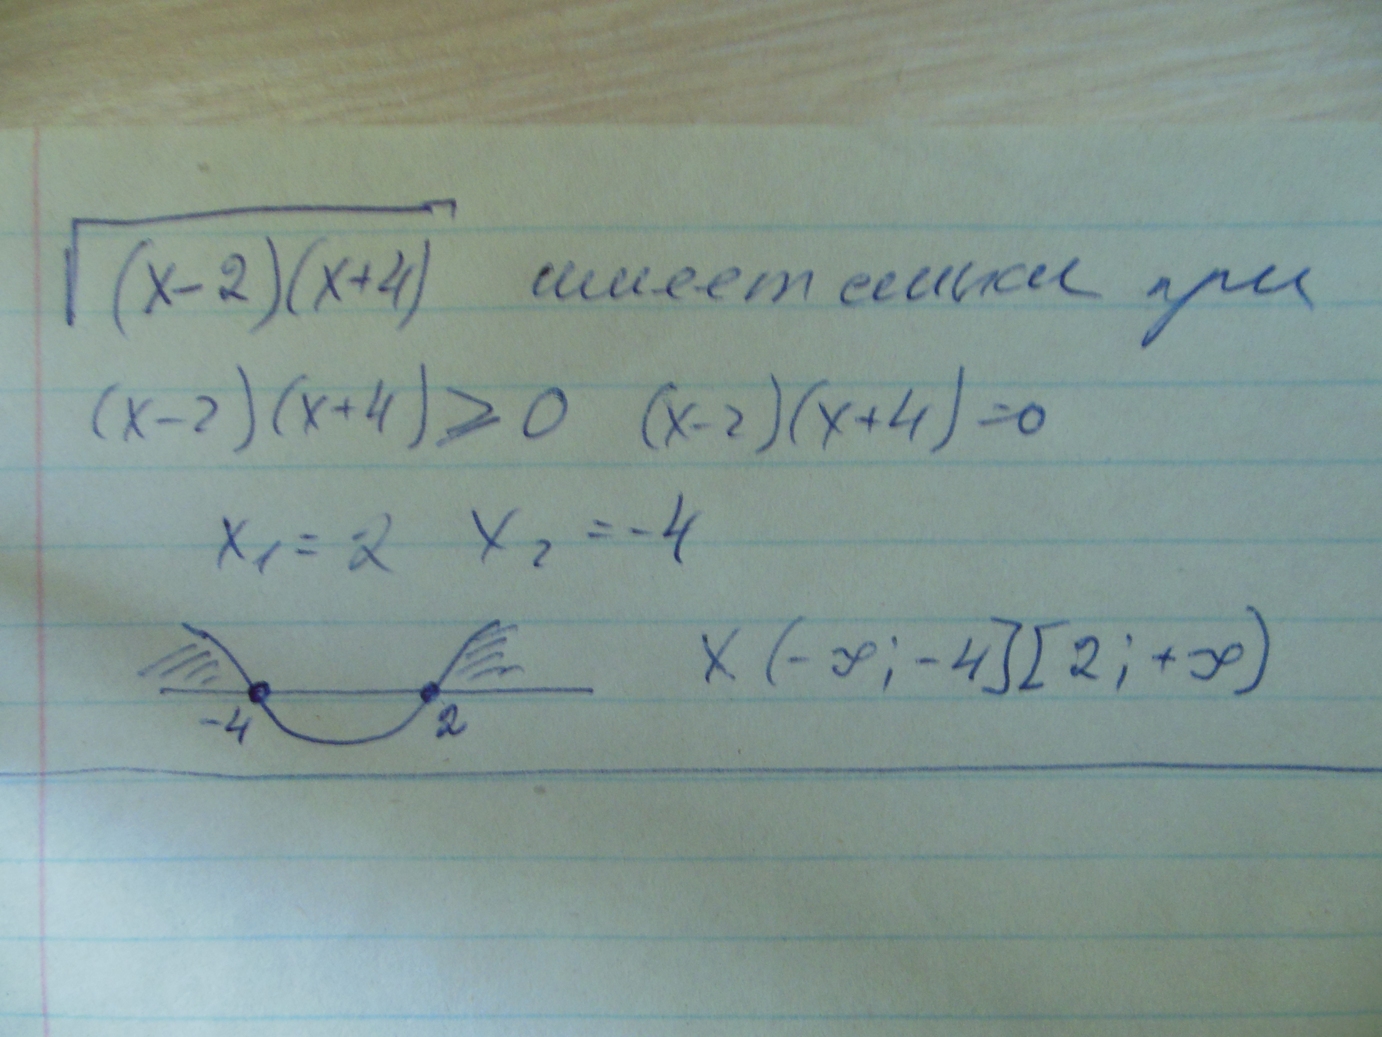 √(x-2)(x+4) имеет смысл при
(x-2)(x+4)⩾0 (x-2)(x+4)=0
x₁=2 x₂=-4
-4 2 X(-∞;-4][2;+∞)